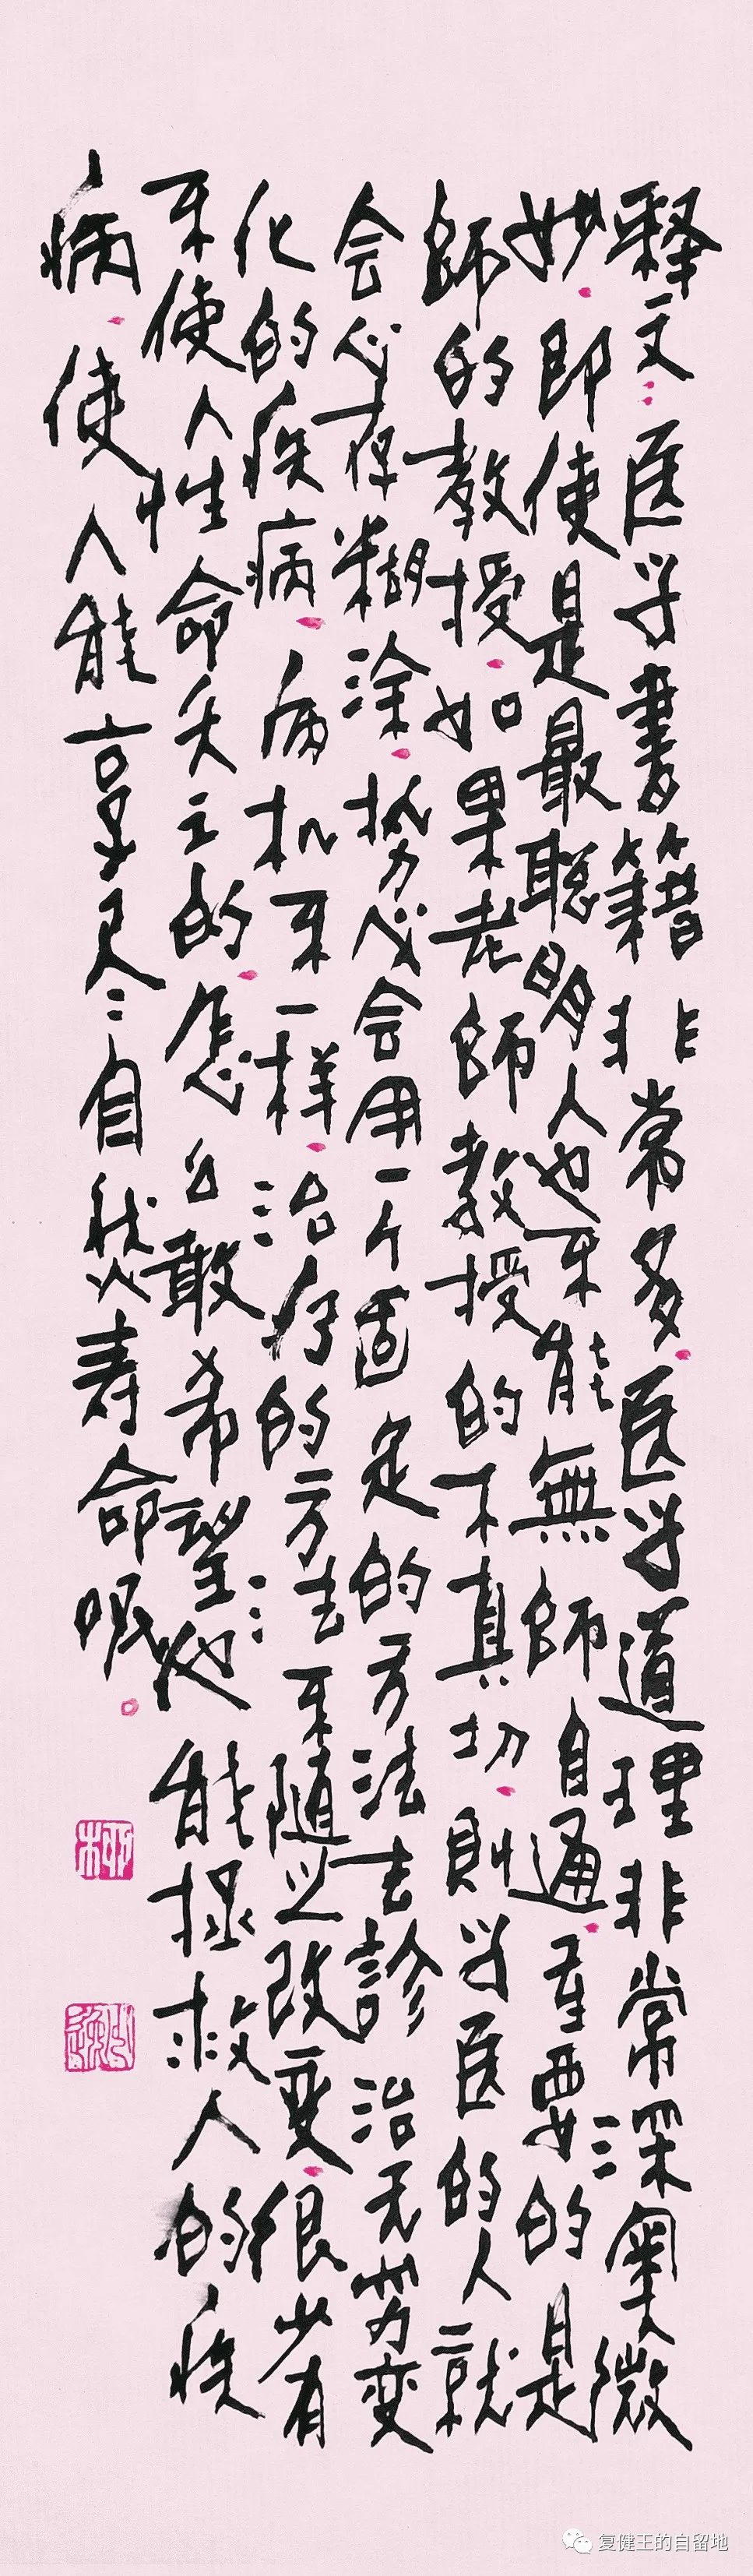 释文：医学書籍非常多.医学道理非常深奧微
妙.即使是最聪明人也不能無師自通.重要的是
師的教授.如果老師教授的不真切.則学医的人就
会心存糊涂.势必会用一个固定的方法去診治无穷变
化的疾病.病机不一样.治疗的方法不随之改变.很少有
不使人性命失去的.怎么敢希望他能拯救人的疾
病.使人能享尽自然寿命呢。
柯
复健王的自留地